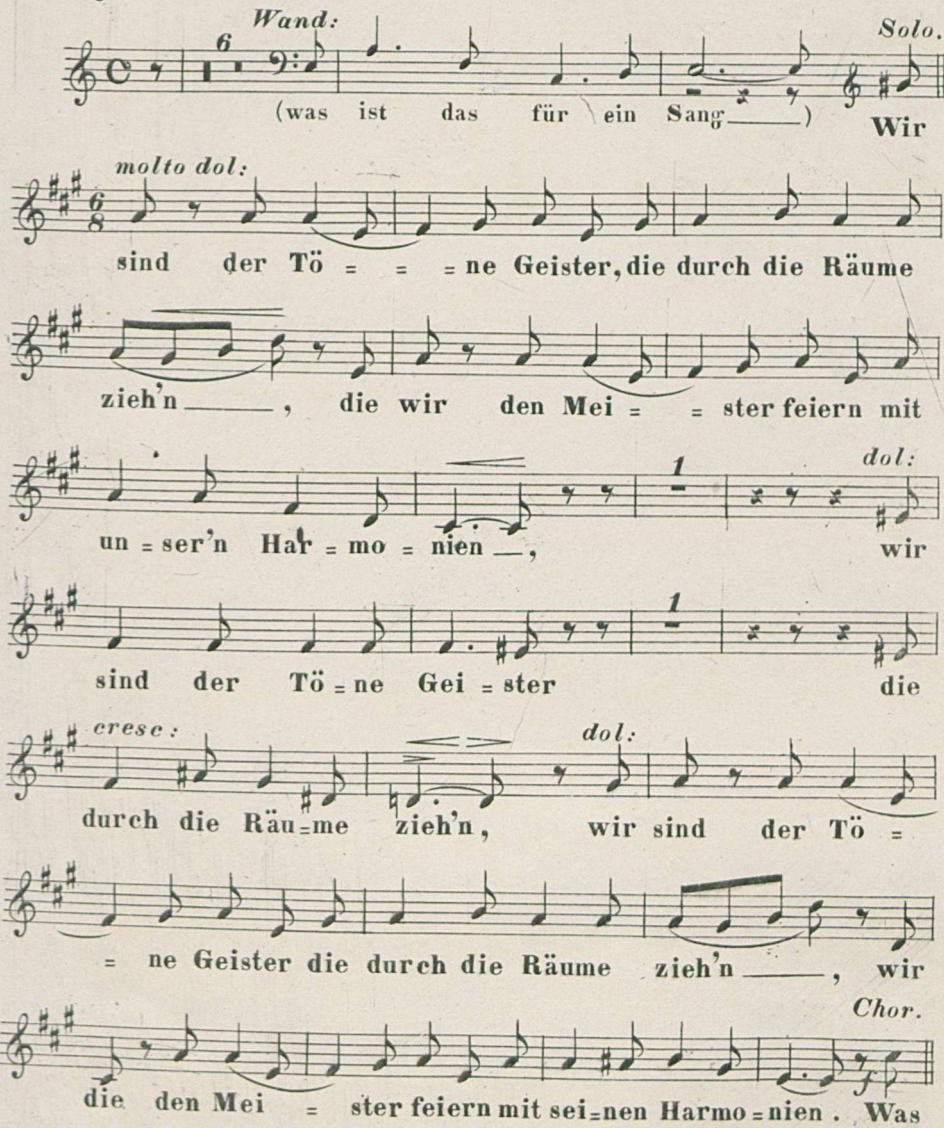 Wand: Solo.
6
(was ist das für ein Sang ) Wir
molto dol:
6
8
sind der Tö = = = ne Geister, die durch die Räume
zieh'n , die wir den Mei = = ster feiern mit
1 dol:
un = ser'n Har = mo = nien , wir
1
sind der Tö = ne Gei = ster die
cresc: dol:
durch die Räu = me zieh'n, wir sind der Tö =
= ne Geister die durch die Räume zieh'n , wir
Chor.
f
die den Mei = ster feiern mit sei = nen Harmo = nien . Was